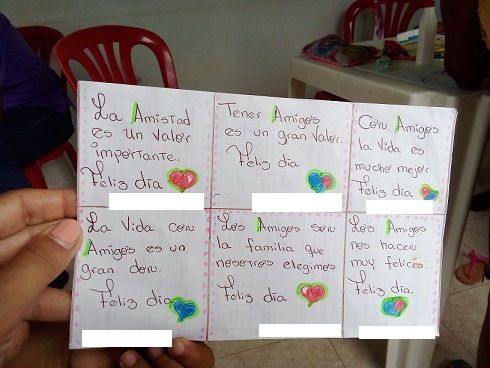 La Amistad
es un valor
importante.
Feliz día
Tener Amigos
es un gran valor.
Feliz día
Con Amigos
la Vida es
mucho mejor
Feliz día
La Vida con
Amigos es un
gran don.
Feliz día
Los Amigos son
la familia que
nosotros elegimos
Feliz día
Los Amigos
nos hacen
muy felices.
Feliz día.